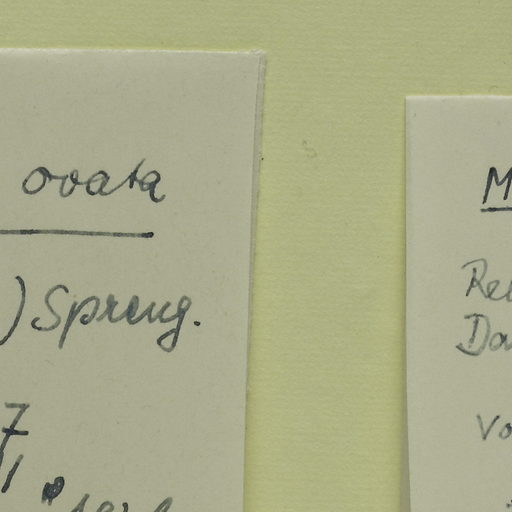 ovata
) Spreng.
7
M
Re
Da
Vo